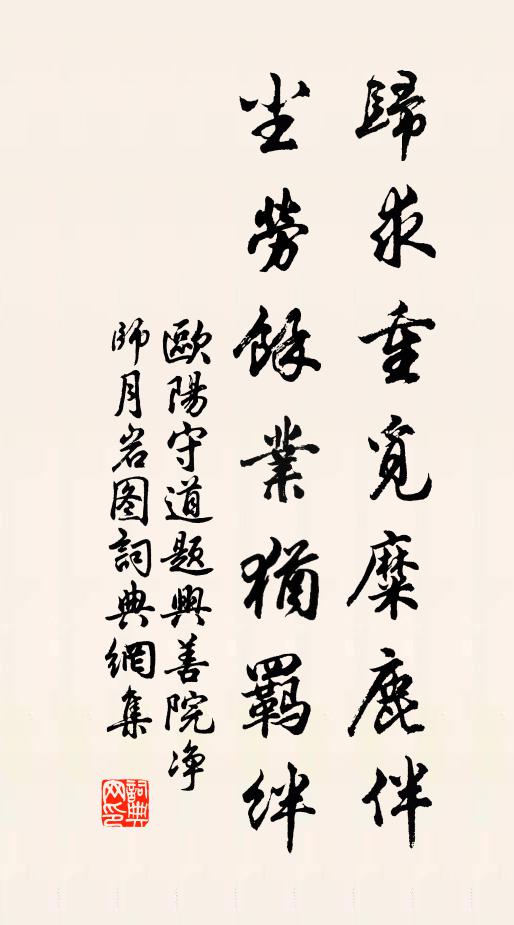 歸求重覓麋鹿伴
坐勞餘業猶羈絆
歐陽守道題興善院净
師月岩图詞典網集
詞典网印